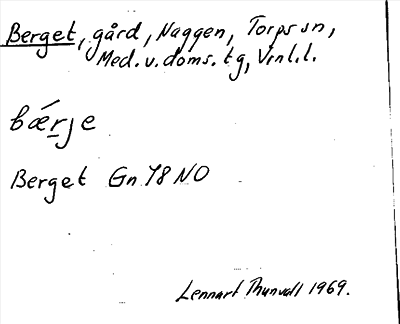 Berget, gård, Naggen, Torps sn,
Med. v. doms. tg, Vnl.l.
bǽrje
Berget Gn 78 NO
Lennart Thunvall 1969.